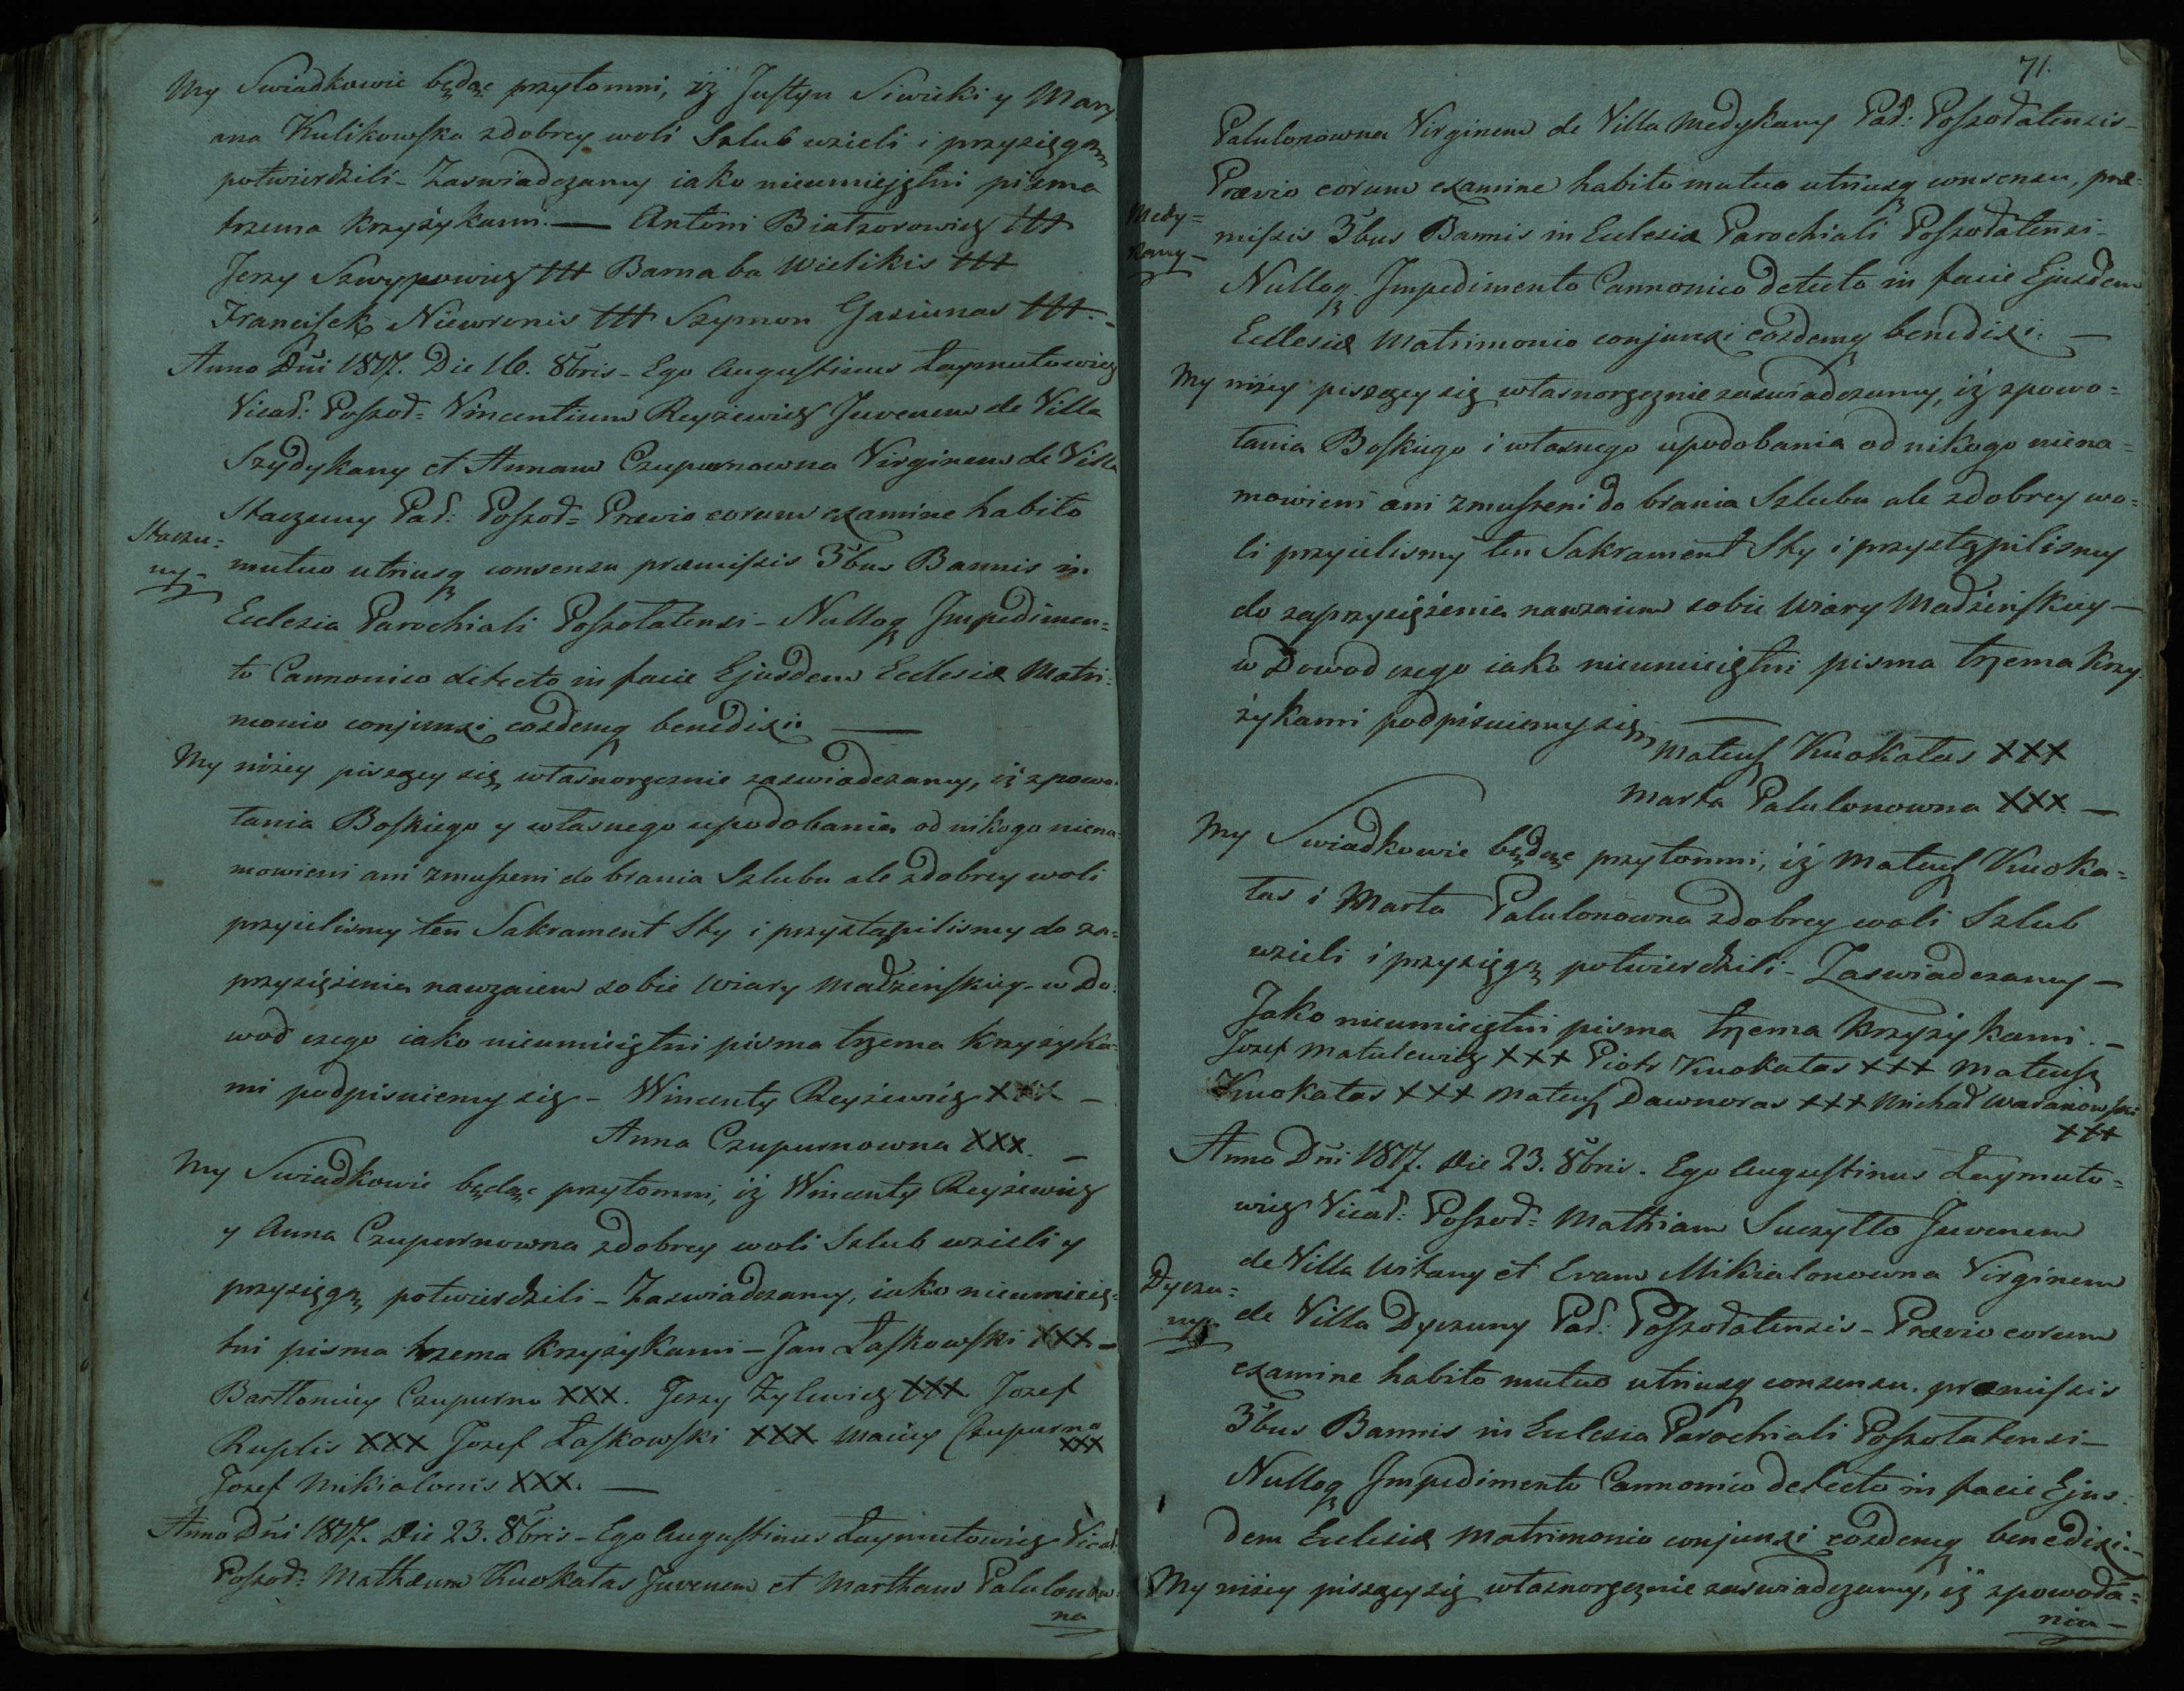 My Swiadkowie będąc przytomni, iż Justyn Siwicki y Mary
ana Kulikowska zdobrey woli Szlub wzieli i przysięgą
potwierdzili - Zaswiadczamy iako nieumiejętni pisma
trzema krzyżykami. — Antoni Białzorowicz +++
Jerzy Szwypowicz +++ Barnaba Wielikis +++
Francisek Niewronis +++ Szymon Gasiunas +++. -
Anno Dni 1817. Die 16. 8bris - Ego Augustinus Łaymutowicz
Vicad: Poszod= Vincentium Reyżewicz Juvenem de Villa
Szydykany et Annam Czupurnowna Virginem de Villa
Staczuny Pad: Poszod= Prævio eorum examine habito
Staczu=
ny -
mutuo utriusq consensu præmissis 3bus Bannis in
Eclesia Parochiali Poszołatensi - Nulloq Jmpedimen=
to Cannonico detecto in facie Ejusdem Ecclesiæ Matri=
monio conjunxi eosdemq benedixi. —
My niżey piszący się własnoręcznie zaswiadczamy, iż zpowo=
łania Boskiego y własnego upodobania od nikogo niena=
mowieni ani zmuszeni do brania Szlubu ale zdobrey woli
przyielismy ten Sakrament Sty i przystąpilismy do za=
przysiężenia nawzaiem sobie Wiary Madżeńskiey - w Do=
wod czego iako nieumieiętni pisma trzema krzyżyka=
mi podpisuiemy się - Wincenty Reyżewicz XXX -
Anna Czupurnowna XXX. -
My Swiadkowie będąc przytomni, iż Wincenty Reyżewicz
y Anna Czupurnowna zdobrey woli Szlub wzieli y
przysięgą potwierdzili - Zaswiadczamy, iako nieumieię=
tni pisma trzema krzyżykami - Jan Łaskowski XXX. -
Bartłomiey Czupurna XXX. Jerzy Żylewicz XXX Jozef
Ruplis XXX Jozef Łaskowski XXX Maciey Czupurna
XXX
Jozef Mikialonis XXX. —
Anno Dni 1817. Die 23. 8bris - Ego Augustinus Łaymutowicz Vicad:
Poszod= Mathæum Knokatas Juvenem et Martham Palulonow=
na
71.
Palulonowna Virginem de Villa Medykany Pad: Poszodatensis -
Prævio eorum examine habito mutuo utriusq consensu, præ=
Medy=
kany -
missis 3bus Bannis in Eclesia Parochiali Poszodatensi -
Nulloq Jmpedimento Cannonico detecto in facie Ejusdem
Ecclesiæ Matrimonio conjunxi eosdemq benedixi. —
My niżey piszący się własnoręcznie zaswiadczamy, iż zpowo=
łania Boskiego i własnego upodobania od nikogo niena=
mowieni ani zmuszeni do brania Szlubu ale zdobrey wo=
li przyielismy ten Sakrament Sty i przystąpilismy
do zaprzysiężenia nawzaiem sobie Wiary Madżeńskiey —
w Dowod czego iako nieumieiętni pisma trzema krzy=
żykami podpisuiemy się —
Mateusz Knokatas XXX
Marta Palulonowna XXX. —
My Swiadkowie będąc przytomni, iż Mateusz Knoka=
tas i Marta Palulonowna zdobrey woli Szlub
wzieli i przysięgą potwierdzili - Zaswiadczamy —
Jako nieumieiętni pisma trzema krzyżykami. -
Jozef Matulewicz +++ Piotr Knokatas +++ Mateusz
Knokatas +++ Mateusz Dawnoras +++ Michał Waranowski
+++
Anno Dni 1817. Die 23. 8bris. Ego Augustinus Łaymuto=
wicz Vicad: Poszod= Mathiam Suszytto Juvenem
de Villa Witany et Evam Mikialonowna Virginem
Dyczu=
ny -
de Villa Dyczuny Pad: Poszodatensis - Prævio eorum
examine habito mutuo utriusq consensu, præmissis
3bus Bannis in Eclesia Parochiali Poszołatensi —
Nulloq Jmpedimento Cannonico detecto in facie Ejus=
dem Eclesiæ Matrimonio conjunxi eosdemq benedixi. -
My niżey piszący się własnoręcznie zaswiadczamy, iż zpowoła=
nia -